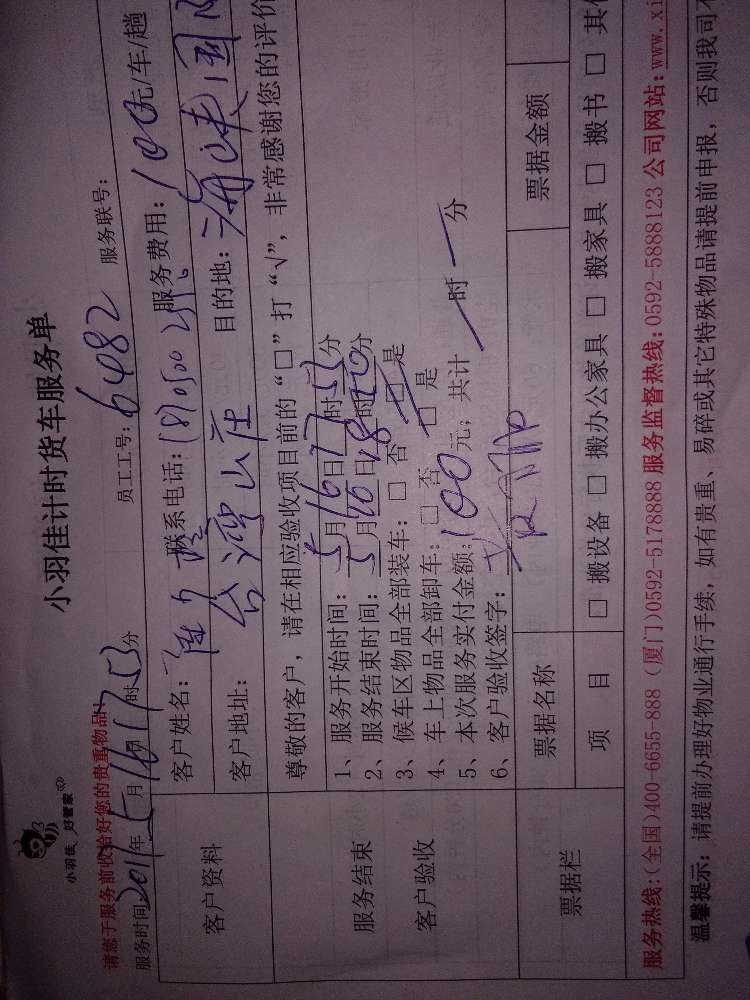 小羽佳 好管家
小羽佳计时货车服务单
请您于服务前收恰好您的贵重物品!
服务时间: 2017年5月16日17时53分 员工工号: 6482 服务联号:
客户资料
客户姓名: 联系电话: 服务费用: 100元/车/趟
客户地址: 台湾山庄 目的地: 海峡国
尊敬的客户，请在相应验收项目前的“□”打“√”，非常感谢您的评价
服务结束
客户验收
1、服务开始时间: 5月16日17时53分
2、服务结束时间: 5月16日18时20分
3、候车区物品全部装车: □ 否 □ 是
4、车上物品全部卸车: □ 否 □ 是
5、本次服务实付金额: 100元; 共计 时 分
6、客户验收签字:
票据栏 票据名称 票据金额
项 目 □ 搬设备 □ 搬办公家具 □ 搬家具 □ 搬书 □
服务热线: (全国)400-6655-888 (厦门)0592-5178888 服务监督热线: 0592-5888123 公司网站: www.xi
温馨提示: 请提前办理好物业通行手续，如有贵重、易碎或其它特殊物品请提前申报，否则我司不